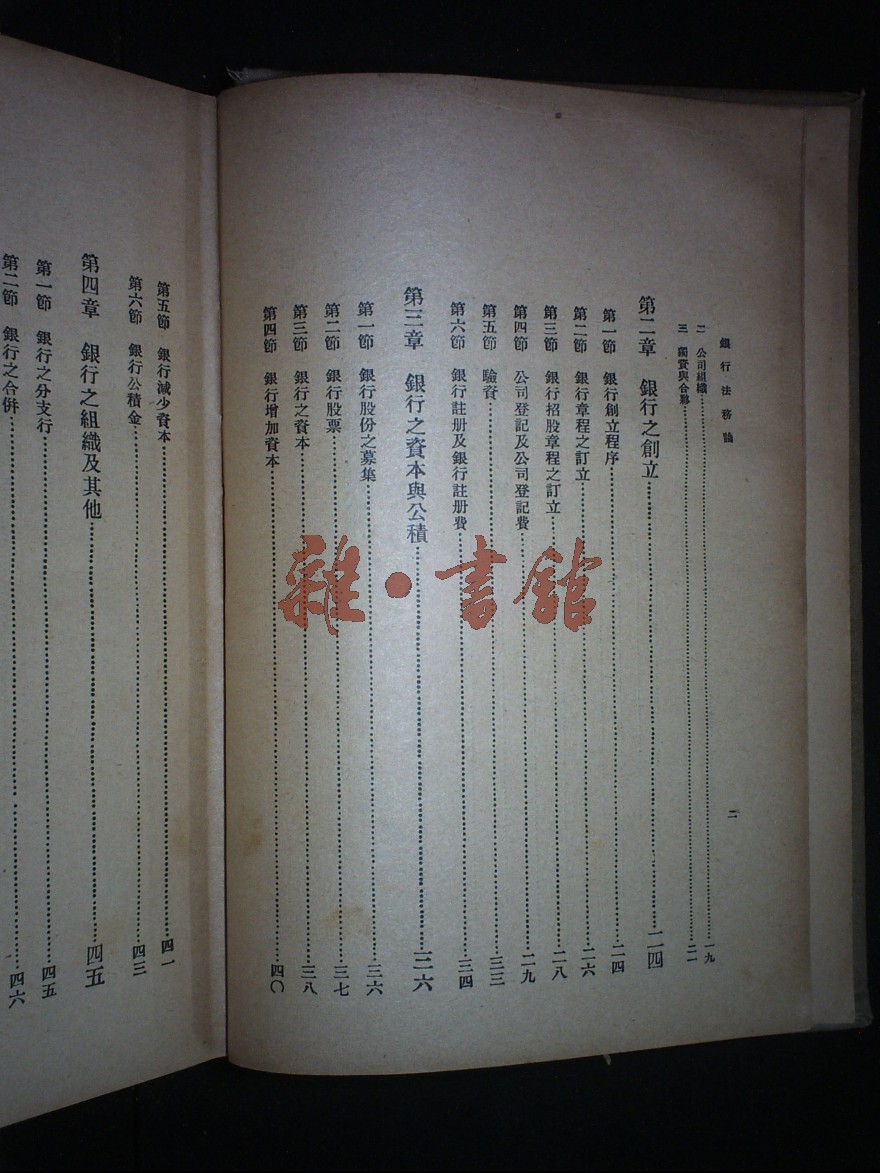 銀行法務論
二
二 公司組織 一九
三 獨資與合夥 二一
第二章 銀行之創立 二四
第一節 銀行創立程序 二四
第二節 銀行章程之訂立 二六
第三節 銀行招股章程之訂立 二八
第四節 公司登記及公司登記費 二九
第五節 驗資 三三
第六節 銀行註册及銀行註册費 三四
第三章 銀行之資本與公積 三六
第一節 銀行股份之募集 三六
第二節 銀行股票 三七
第三節 銀行之資本 三八
第四節 銀行增加資本 四〇
第五節 銀行減少資本 四一
第六節 銀行公積金 四三
第四章 銀行之組織及其他 四五
第一節 銀行之分支行 四五
第二節 銀行之合併 四六
雜·書館